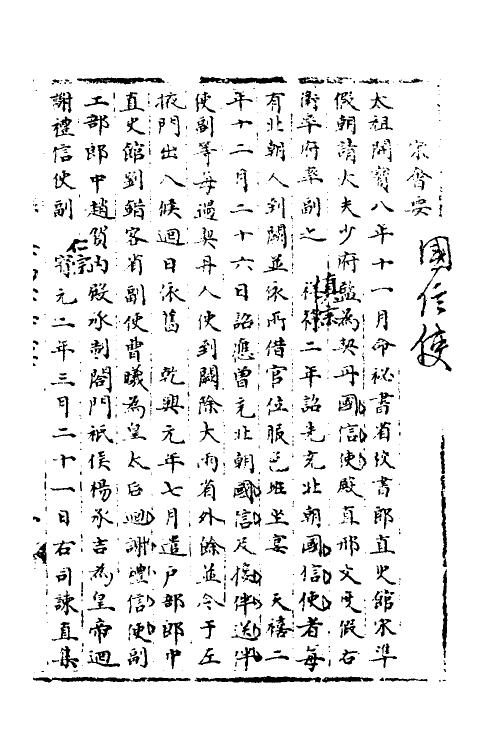 國信使
宋會要
太祖開寶八年十一月命祕書省校書郎直史館宋準
假朝請大夫少府監為契丹國信使殿直邢文慶假右
衛率府率副之 真宗祥符二年詔先充北朝國信使者每
有北朝人到闕並依所借官位服色班坐宴 天禧二
年十二月二十六日詔應曾充北朝國信及接伴送伴
使副等每遇契丹人使到闕除大兩省外餘並令于左
掖門出入候迴日依舊 乾興元年七月遣戶部郎中
直史館劉鍇客省副使曹曦為皇太后迴謝禮信使副
工部郎中趙賀內殿承制閤門祗候楊承吉為皇帝迴
謝禮信使副 仁宗寶元二年三月二十一日右司諫直集